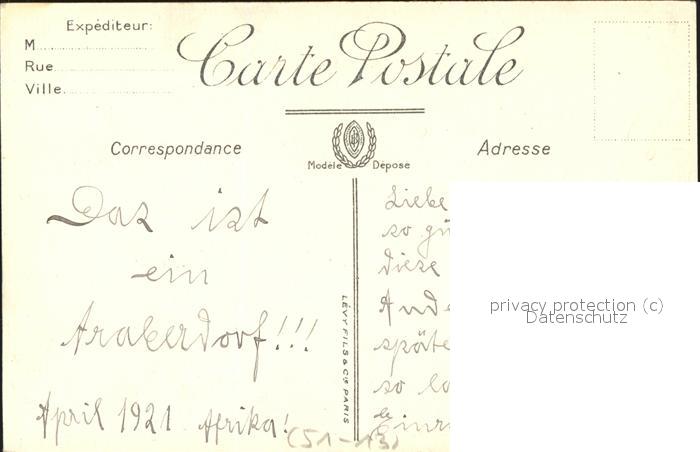 Expéditeur:
M
Rue
Ville
Carte Postale
Correspondance
Modèle Déposé
Adresse
Das ist
ein
Araberdorf!!!
April 1921 Afrika!
(51-13)
LÉVY FILS & Cie PARIS
Liebe
so gü
diese
Ande
späte
so la
Einr
privacy protection (c)
Datenschutz